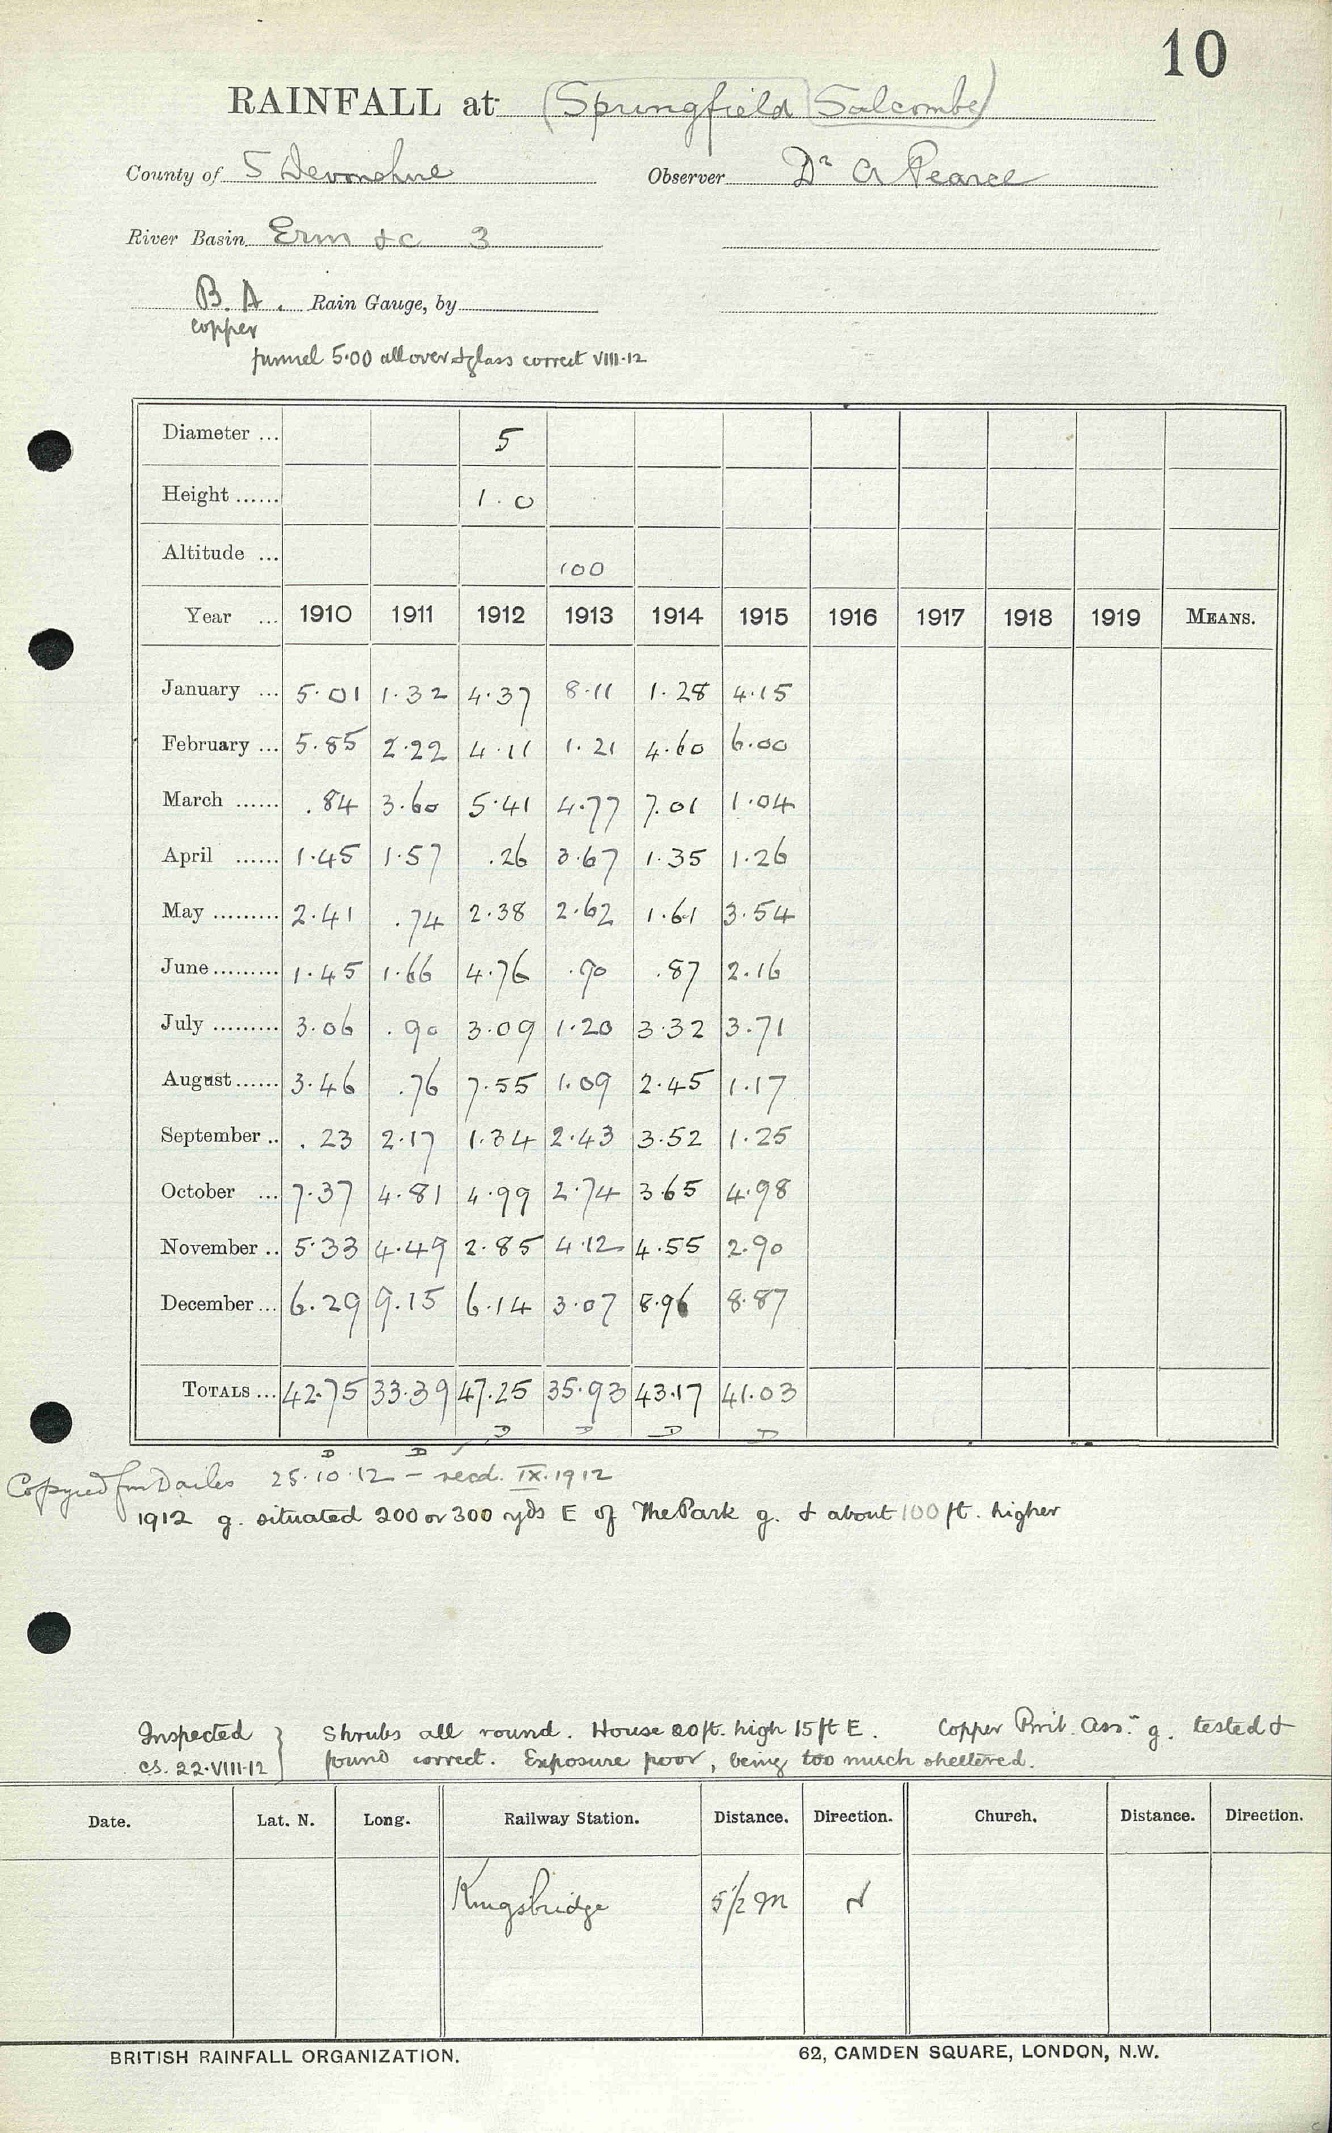 10
RAINFALL at (Springfield Salcombe)
County of S Devonshire Observer Dr A Pearce
River Basin Erm &c 3
B. A. Rain Gauge, by
copper
funnel 5·00 all over & glass correct VIII·12
Diameter ... 5
Height ...... 1·0
Altitude ... 100
Year ... 1910 1911 1912 1913 1914 1915 1916 1917 1918 1919 MEANS.
January ... 5·01 1·32 4·37 8·11 1·28 4·15
February ... 5·85 2·22 4·11 1·21 4·60 6·00
March ...... .84 3·60 5·41 4·77 7·01 1·04
April ...... 1·45 1·57 .26 3·67 1·35 1·26
May ......... 2·41 .74 2·38 2·62 1·61 3·54
June ......... 1·45 1·66 4·76 ·90 .87 2·16
July ......... 3·06 .90 3·09 1·20 3·32 3·71
August ...... 3·46 .76 7·55 1·09 2·45 1·17
September .. .23 2·17 1·34 2·43 3·52 1·25
October ... 7·37 4·81 4·99 2·74 3·65 4·98
November .. 5·33 4·49 2·85 4·12 4·55 2·90
December ... 6·29 9·15 6·14 3·07 8·96 8·87
TOTALS ... 42·75 33·39 47·25 35·93 43·17 41·03
D D D D D D
Copyied fm Dailes 25·10·12 — recd. IX·1912
1912 g. situated 200 or 300 yds E of The Park g. & about 100 ft. higher
Inspected } Shrubs all round. House 20ft. high 15ft E. Copper Brit. Assn. g. tested &
CS. 22·VIII·12 found correct. Exposure poor, being too much sheltered.
Date. Lat. N. Long. Railway Station. Distance. Direction. Church. Distance. Direction.
Kingsbridge 5½ m N
BRITISH RAINFALL ORGANIZATION. 62, CAMDEN SQUARE, LONDON, N.W.